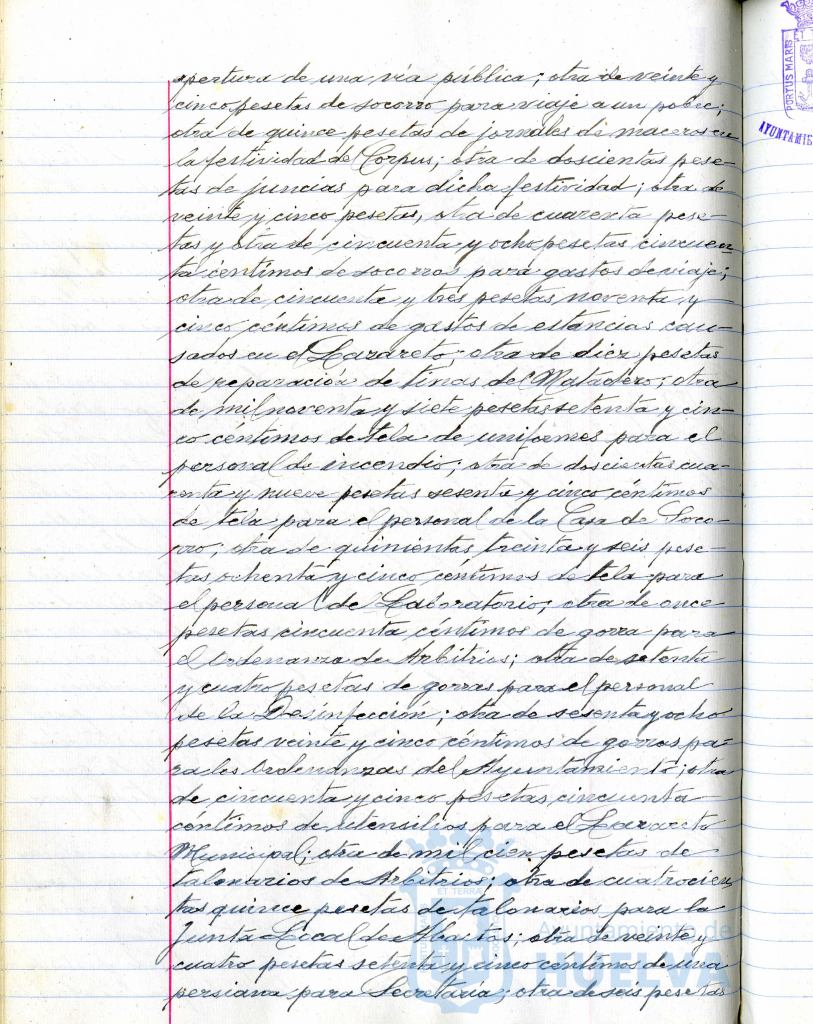 apertura de una vía pública; otra de veinte y
cinco pesetas de socorro para viaje a un pobre;
otra de quince pesetas de jornales de maceros en
la festividad de Corpus; otra de doscientas pese-
tas de juncias para dicha festividad; otra de
veinte y cinco pesetas, otra de cuarenta pese-
tas y otra de cincuenta y ocho pesetas cincuen-
ta céntimos de socorros para gastos de viaje;
otra de cincuenta y tres pesetas noventa y
cinco céntimos de gastos de estancias cau-
sados en el Lazareto; otra de diez pesetas
de reparación de tinas del Matadero; otra
de mil noventa y siete pesetas setenta y cin-
co céntimos de tela de uniformes para el
personal de incendio; otra de doscientas cua-
renta y nueve pesetas sesenta y cinco céntimos
de tela para el personal de la Casa de Soco-
rro; otra de quinientas treinta y seis pese-
tas ochenta y cinco céntimos de tela para
el personal de Laboratorio; otra de once
pesetas cincuenta céntimos de gorra para
el Ordenanza de Arbitrios; otra de setenta
y cuatro pesetas de gorras para el personal
de la Desinfección; otra de sesenta y ocho
pesetas veinte y cinco céntimos de gorras pa-
ra los Ordenanzas del Ayuntamiento; otra
de cincuenta y cinco pesetas cincuenta
céntimos de utensilios para el Lazareto
Municipal; otra de mil cien pesetas de
talonarios de Arbitrios; otra de cuatrocien-
tas quince pesetas de talonarios para la
Junta Local de Abastos; otra de veinte y
cuatro pesetas setenta y cinco céntimos de una
persiana para Secretaría; otra de seis pesetas
PORTUS MARIS
AYUNTAMIE
ET TERRAE
Ayuntamiento de
HUELVA